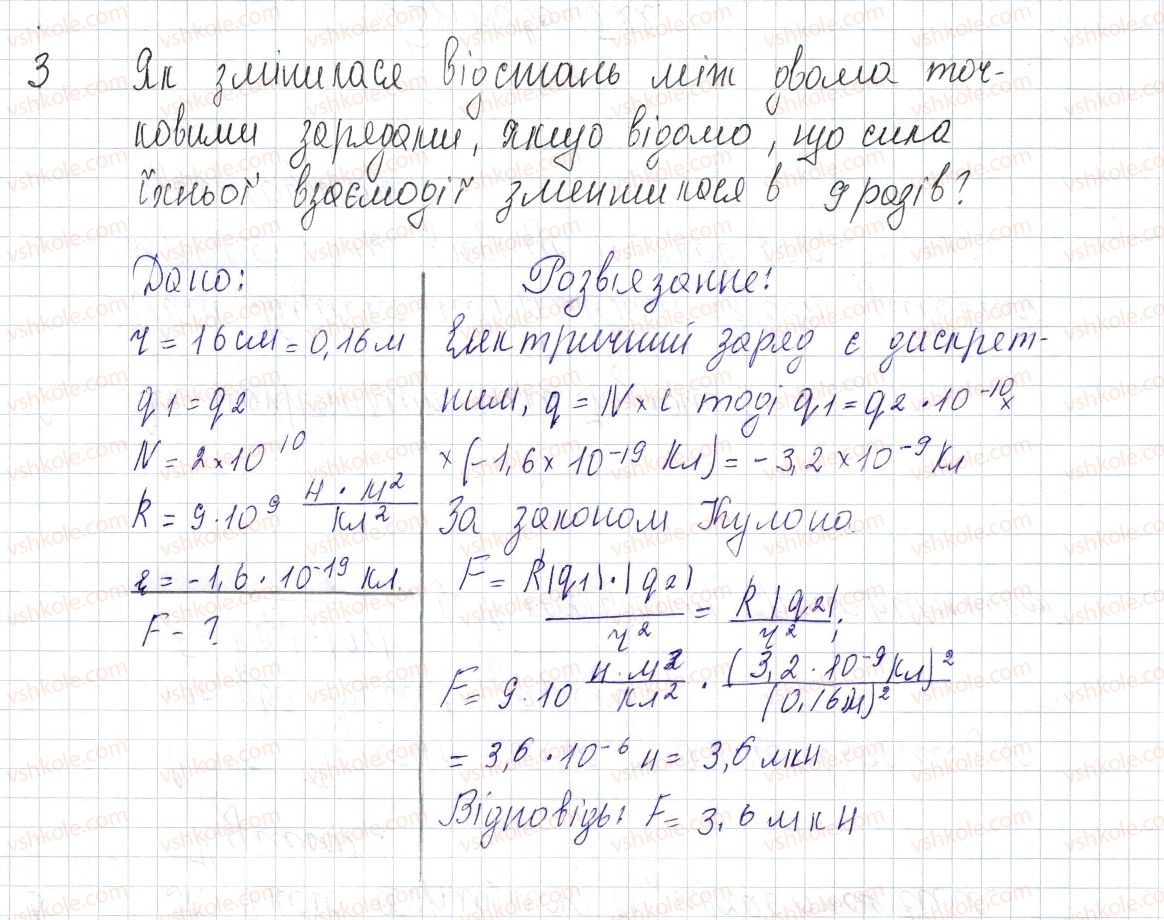 3 Як змінилася відстань між двома точ-
ковими зарядами, якщо відомо, що сила
їхньої взаємодії зменшилася в 9 разів?
Дано:
r = 16 см = 0,16 м
q1 = q2
N = 2 × 10^10
k = 9 · 10^9 Н · м²/Кл²
e = -1,6 · 10^-19 Кл.
F - ?
Розв'язання:
Електричний заряд є дискрет-
ним, q = N × e тоді q1 = q2 · 10^-10 ×
× (-1,6 × 10^-19 Кл) = -3,2 × 10^-9 Кл
За законом Кулона
F = k|q1|·|q2|/r² = k|q2|/r²;
F = 9 · 10 Н·м²/Кл² · (3,2 · 10^-9 Кл)²/(0,16 м)²
= 3,6 · 10^-6 Н = 3,6 мкН
Відповідь: F = 3,6 мкН
vshkole.com